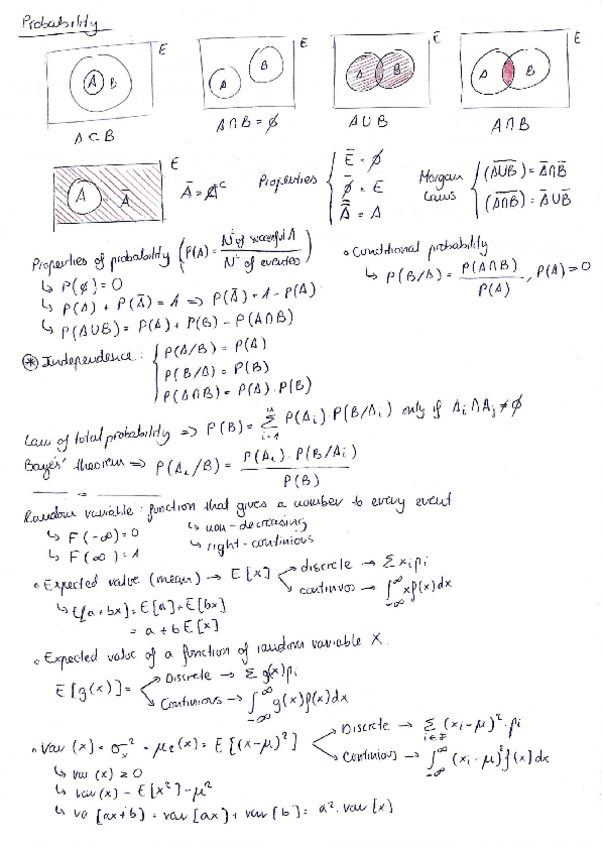 Probability
E
A B
A ⊂ B
E
A B
A∩B = ∅
E
A B
A∪B
E
A B
A∩B
E
A Ā
Ā = A^C
Properties { Ē = ∅
∅̄ = E
A̿ = A
Morgan Laws { (A∪B)‾ = Ā∩B̄
(A∩B)‾ = Ā∪B̄
Properties of probability (P(A) = Nº of succesful A / Nº of eventes)
↳ P(∅) = 0
↳ P(A) + P(Ā) = 1 ⇒ P(Ā) = 1 - P(A)
↳ P(A∪B) = P(A) + P(B) - P(A∩B)
• Conditional probability
↳ P(B/A) = P(A∩B) / P(A), P(A) > 0
* Independence: { P(A/B) = P(A)
P(B/A) = P(B)
P(A∩B) = P(A) · P(B)
Law of total probability ⇒ P(B) = Σ P(Ai) · P(B/Ai) only if Ai∩Aj ≠ ∅
Bayes' theorem ⇒ P(Ai/B) = P(Ai) · P(B/Ai) / P(B)
Random variable: function that gives a number to every event
↳ F(-∞) = 0 ↳ non-decreasing
↳ F(∞) = 1 ↳ right-continious
• Expected value (mean) → E[x] discrete → Σ xi pi
continuos → ∫_{-∞}^{∞} x f(x) dx
↳ E[a+bx] = E[a] + E[bx]
= a + b E[x]
• Expected value of a function of random variable X.
E[g(x)] = Discrete → Σ g(x) pi
Continious → ∫_{-∞}^{∞} g(x) f(x) dx
• Var (x) = σx² = μ2(x) = E[(x-μ)²] Discrete → Σ (xi-μ)² · pi
Continious → ∫_{-∞}^{∞} (xi-μ)² f(x) dx
↳ var (x) ≥ 0
↳ var (x) = E[x²] - μ²
↳ va [ax+b] = var [ax] + var [b] = a² · var [x]